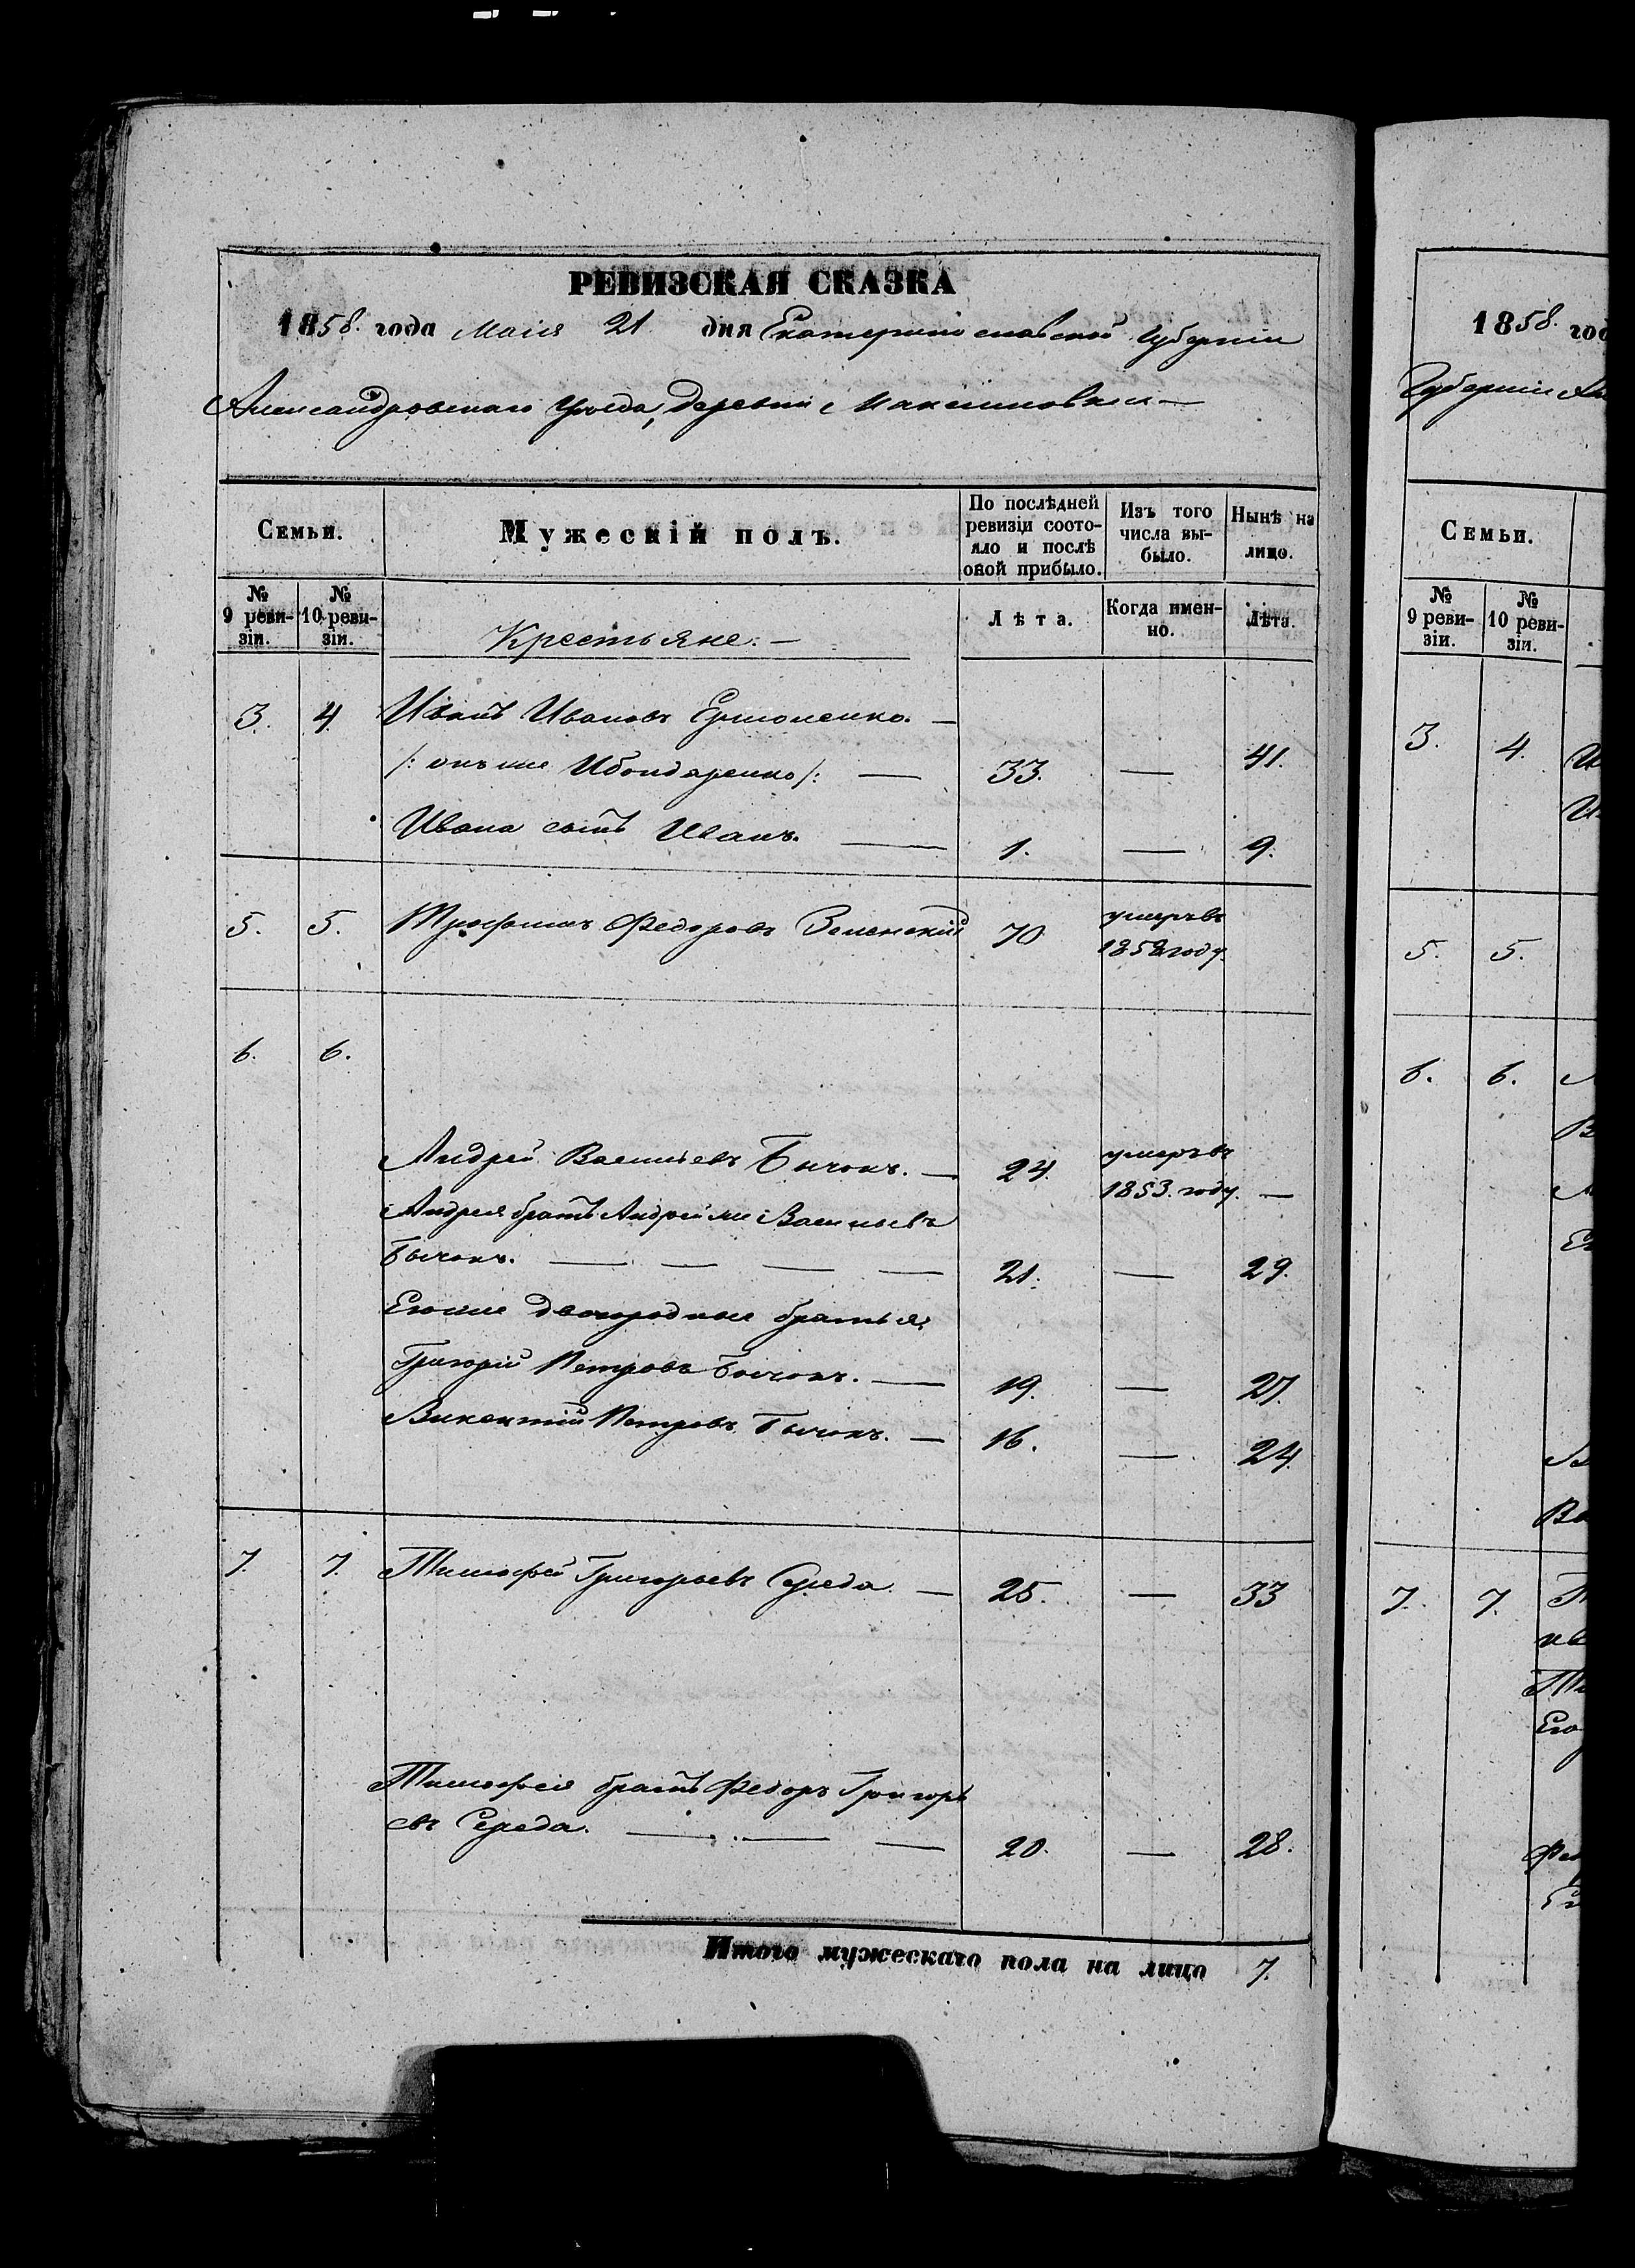 РЕВИЗСКАЯ СКАЗКА
1858. года Маія 21 дня Екатеринославской Губерніи
Александровскаго уѣзда, деревни Максимовки —
Семьи. Мужескій полъ. По послѣдней ревизіи состояло и послѣ оной прибыло. Изъ того числа выбыло. Нынѣ на лицо.
№ 9 ревизіи. № 10 ревизіи. Крестьяне. — Лѣта. Когда именно. Лѣта.
3. 4. Иванъ Ивановъ Ермоленко. —
/: онъ же Ибондаренко :/ — 33. — 41.
Ивана сынъ Иванъ. — 1. — 9.
5. 5. Трофимъ Федоровъ Зеленскій 70 умеръ въ
185 году.
6. 6.
Андрей Васильевъ Бычокъ. — 24. умеръ въ
1853. году. —
Андрея братъ Андрей же Васильевъ
Бычокъ. — — — — 21. — 29.
Егоже двоюродные братья:
Григорій Петровъ Бычокъ. — 19. — 27.
Викентій Петровъ Бычокъ. — 16. — 24.
7. 7. Тимофей Григорьевъ Середа. — 25. — 33
Тимофея братъ Федоръ Григорь
евъ Середа. — — — 20. — 28.
Итого мужескаго пола на лицо 7.
1858. год
Губерніи
Семьи.
№ 9 ревизіи. № 10 ревизіи.
3. 4.
5. 5.
6. 6.
7. 7.